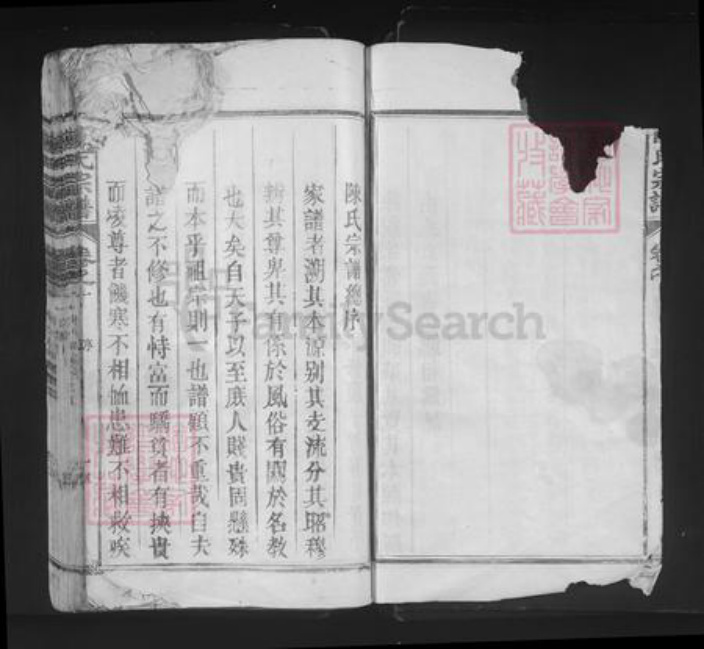 陳氏宗譜總序
家譜者溯其本源別其支流分其昭穆
辨其尊卑其有係於風俗有關於名教
也大矣自天子以至庶人賤貴固懸殊
而本乎祖宗則一也譜顧不重哉自夫
譜之不修也有恃富而驕貧者有挾貴
而凌尊者饑寒不相恤患難不相救唉
氏宗譜
FamilySearch